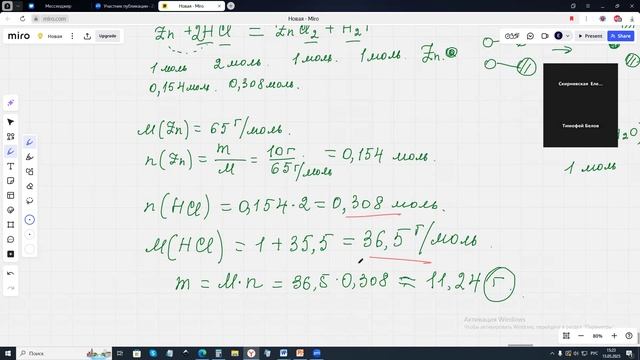 Мессенджер
Участник публикации - Z
Новая - Miro
miro.com
Новая - Miro
miro
Новая
Upgrade
Present
Share
Zn + 2HCl = ZnCl2 + H2↑
1 моль 2 моль. 1 моль. 1 моль. Zn
0,154 моль. 0,308 моль.
Скирневская Еле...
Тимофей Белов
M(Zn) = 65 г/моль.
n(Zn) = m/M = 10г/65г/моль = 0,154 моль.
1 моль
n(HCl) = 0,154·2 = 0,308 моль.
M(HCl) = 1 + 35,5 = 36,5 г/моль.
m = M·n = 36,5·0,308 = 11,24 г.
Активация Windows
Чтобы активировать Windows, перейдите в раздел "Параметры".
80%
РУС
15:23
13.05.2025